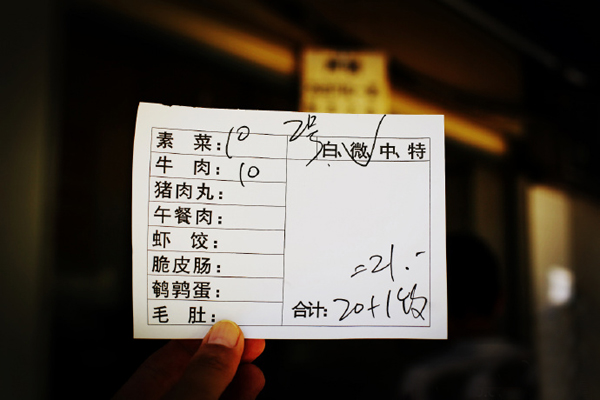 素 菜: 10
牛 肉: 10
猪肉丸:
午餐肉:
虾 饺:
脆皮肠:
鹌鹑蛋:
毛 肚:
2号
白、微、中、特
=21.-
合计: 20+1饭